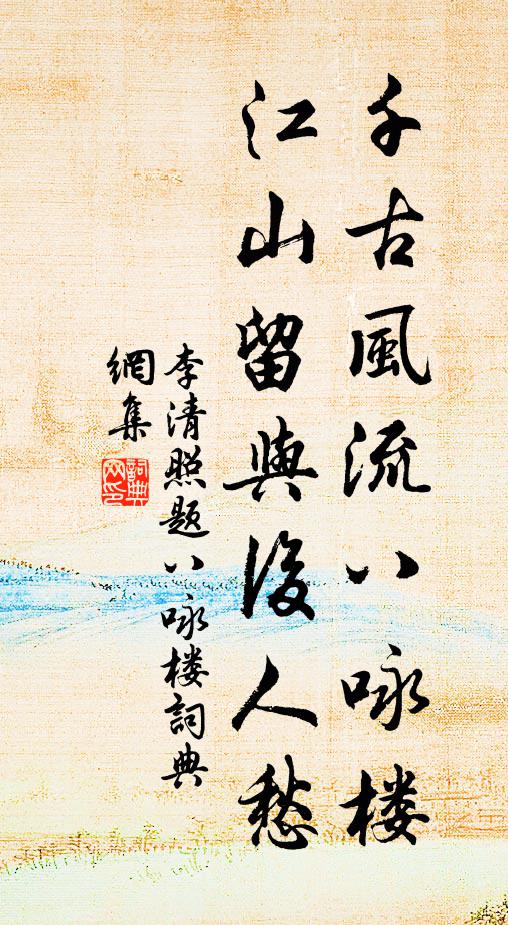 千古風流八咏楼
江山留與後人愁
李清照题八咏楼詞典
網集
詞典網印